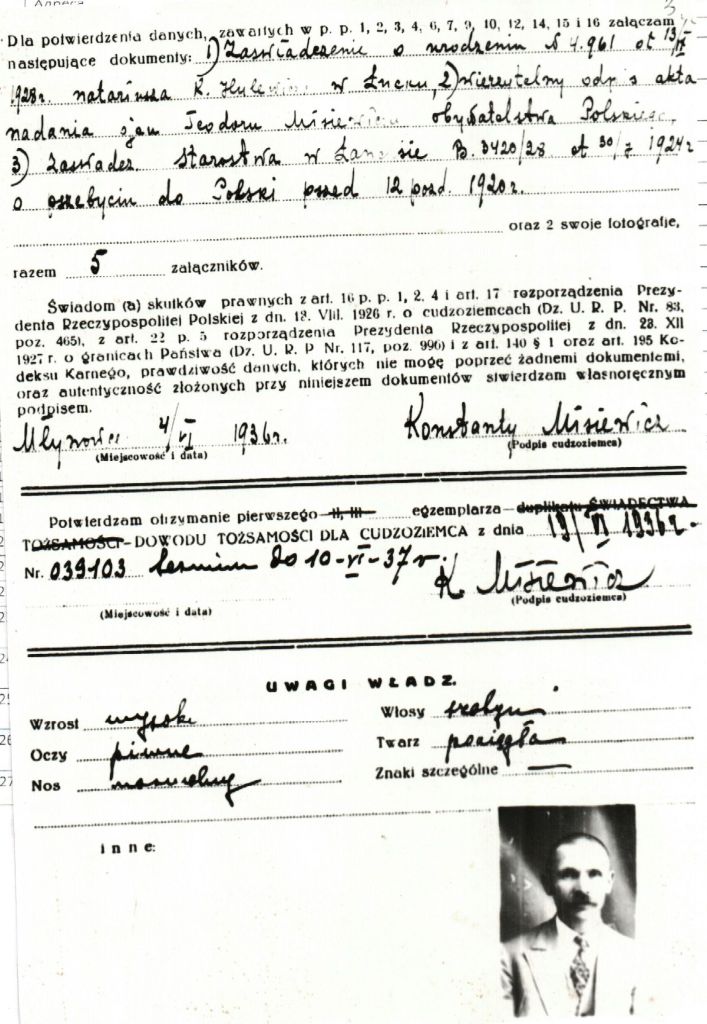 3
Dla potwierdzenia danych, zawartych w p. p. 1, 2, 3, 4, 6, 7, 9, 10, 12, 14, 15 i 16 załączam
następujące dokumenty: 1) Zaświadczenie o urodzeniu N 4.961 ot 13/IX
1928r. natariusza K. w Łucku, 2) wierzytelny odp. s akta
nadania ojcu Teodoru Misiewiczu obywatelstwa Polskiego,
3) Zaświadcz. Starostwa w B. 3420/28 ot 30/ 1924r
o przebyciu do Polski przed 12 pozd. 1920r.
oraz 2 swoje fotografje,
razem 5 załączników.
Świadom (a) skutków prawnych z art. 16 p. p. 1, 2. 4 i art. 17 rozporządzenia Prezy-
denta Rzeczypospolitej Polskiej z dn. 13. VIII. 1926 r. o cudzoziemcach (Dz. U. R. P. Nr. 83,
poz. 465), z art. 22 p. 5 rozporządzenia Prezydenta Rzeczypospolitej z dn. 23. XII
1927 r. o granicach Państwa (Dz. U. R. P Nr. 117, poz. 996) i z art. 140 § 1 oraz art. 195 Ko-
deksu Karnego, prawdziwość danych, których nie mogę poprzeć żadnemi dokumentami,
oraz autentyczność złożonych przy niniejszem dokumentów stwierdzam własnoręcznym
podpisem.
4/VI 1936r. Konstanty Misiewicz
(Miejscowość i data) (Podpis cudzoziemca)
Potwierdzam otrzymanie pierwszego II, III egzemplarza duplikatu ŚWIADECTWA
TOŻSAMOŚCI - DOWODU TOŻSAMOŚCI DLA CUDZOZIEMCA z dnia 19/VI 1936r.
Nr. 039103 termin do 10-VI-37 r. K Misiewicz
(Miejscowość i data) (Podpis cudzoziemca)
UWAGI WŁADZ.
Wzrost wysoki Włosy
Oczy piwne Twarz pociągła
Nos Znaki szczególne —
inne: